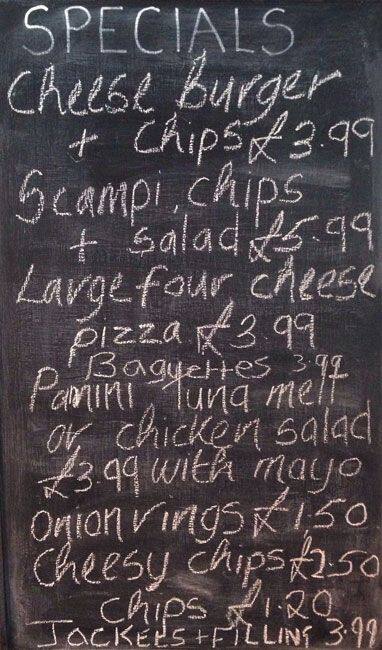 SPECIALS
Cheese burger
+ chips £3.99
Scampi, chips
+ salad £5.99
Large four cheese
pizza £3.99
Baguettes 3.99
Panini Tuna melt
or chicken salad
£3.99 with mayo
onion rings £1.50
Cheesy chips £2.50
chips £1.20
JACKEES + FILLING 3.99